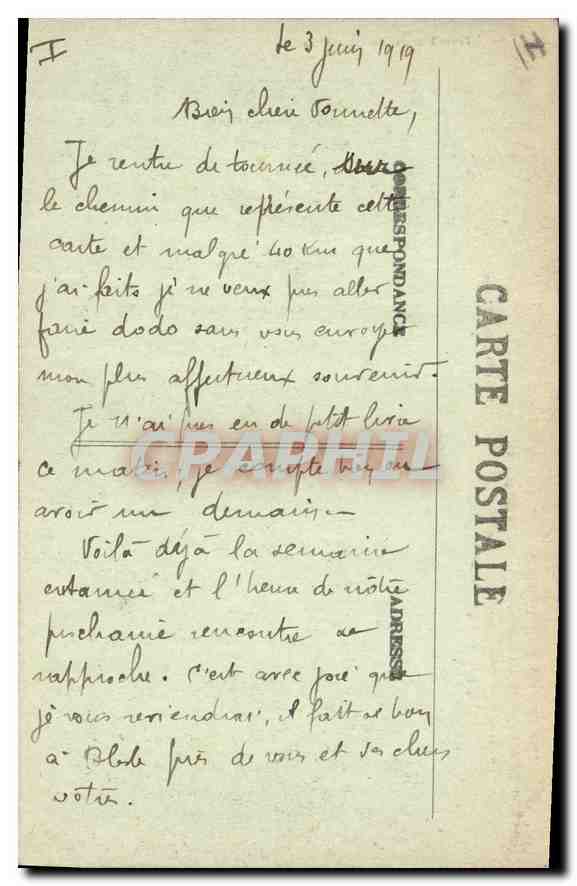 I
I
le 3 juin 1919
Bien chère Vonnette,
Je rentre de tournée,
le chemin que représente cette
carte et malgré 40 km que
j'ai faits je ne veux pas aller
faire dodo sans vous envoyer
mon plus affectueux souvenir.
Je n'ai pas eu de petit livre
ce matin, je compte bien en
avoir un demain.
Voilà déjà la semaine
entamée et l'heure de nôtre
prochaine rencontre se
rapproche. C'est avec joie que
je vous reviendrai, il fait si bon
à près de vous et des chers
vôtres.
CORRESPONDANCE
ADRESSE
CARTE POSTALE
CPAPHIL